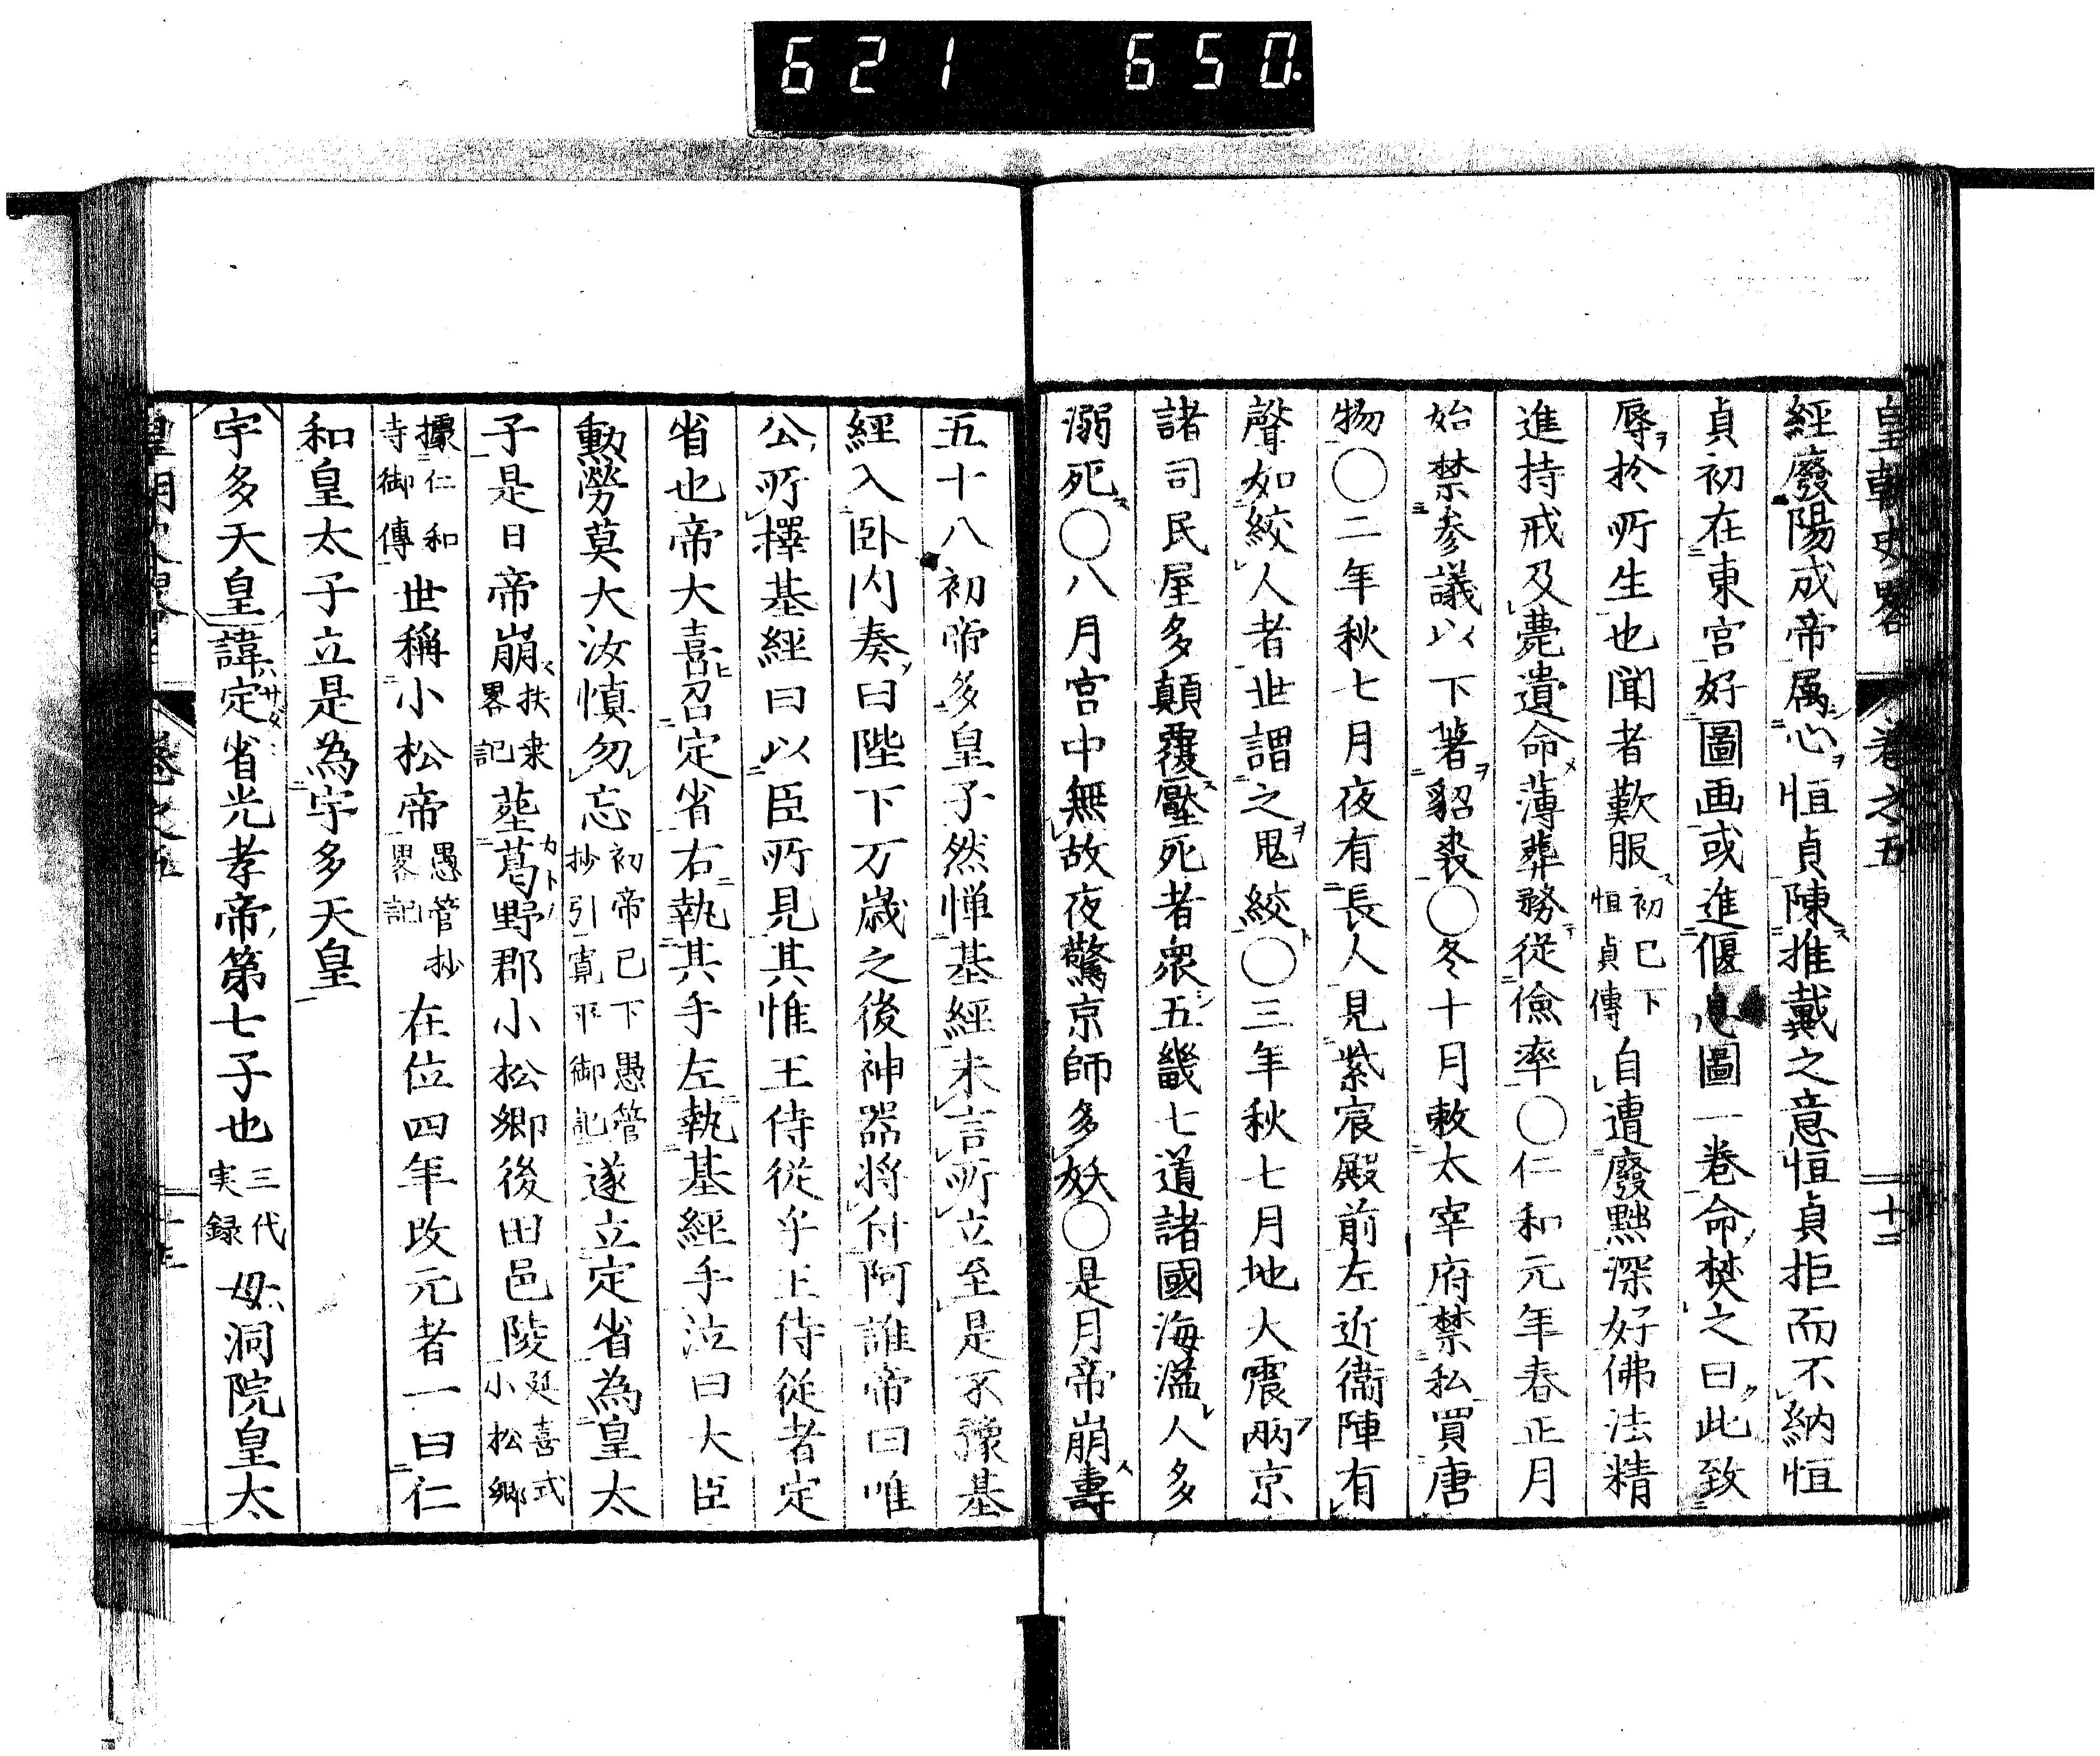 621 650.
皇朝史畧 卷之五 十二
經廢陽成帝属心恒貞陳推戴之意恒貞拒而不納恒
貞初在東宮好圖画或進偃息圖一卷命焚之曰此致
辱於所生也聞者歎服初已下恒貞傳自遭廢黜深好佛法精
進持戒及薨遺命薄葬務從儉率〇仁和元年春正月
始禁参議以下著貂裘〇冬十月敕太宰府禁私買唐
物〇二年秋七月夜有長人見紫宸殿前左近衞陣有
聲如絞人者世謂之鬼絞〇三年秋七月地大震兩京
諸司民屋多顛覆壓死者衆五畿七道諸國海溢人多
溺死〇八月宮中無故夜驚京師多妖〇是月帝崩壽
五十八初帝多皇子然憚基經未言所立至是不豫基
經入卧内奏曰陛下万歳之後神器将付阿誰帝曰唯
公所擇基經曰以臣所見其惟王侍從乎王侍從者定
省也帝大喜召定省右執其手左執基經手泣曰大臣
勲勞莫大汝慎勿忘初帝已下愚管抄引寛平御記遂立定省為皇太
子是日帝崩扶桒畧記葬葛野郡小松郷後田邑陵延喜式小松郷
據仁和寺御傳世稱小松帝愚管抄畧記在位四年改元者一曰仁
和皇太子立是為宇多天皇
宇多天皇諱定省光孝帝第七子也三代実録母洞院皇太